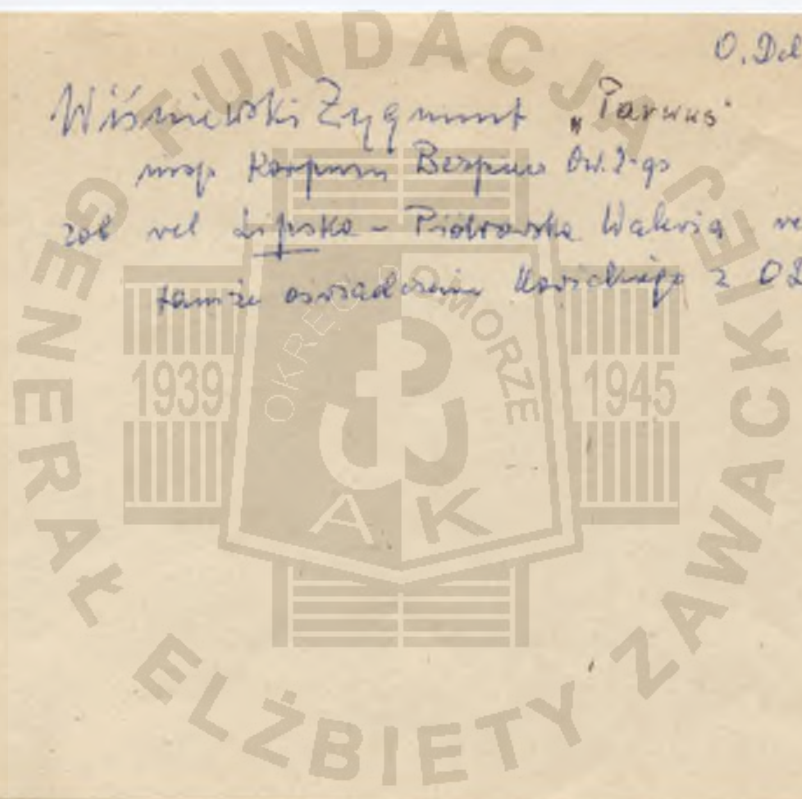 O. Del
Wiśniewski Zygmunt „Parwus"
insp. Korpusu Bezpiecz
zob rel Lipska - Piotrowska Waleria
tamże oświadczenie z
FUNDACJA
GENERAŁ ELŻBIETY ZAWACKIEJ
OKRĘG POMORZE
1939
1945
AK